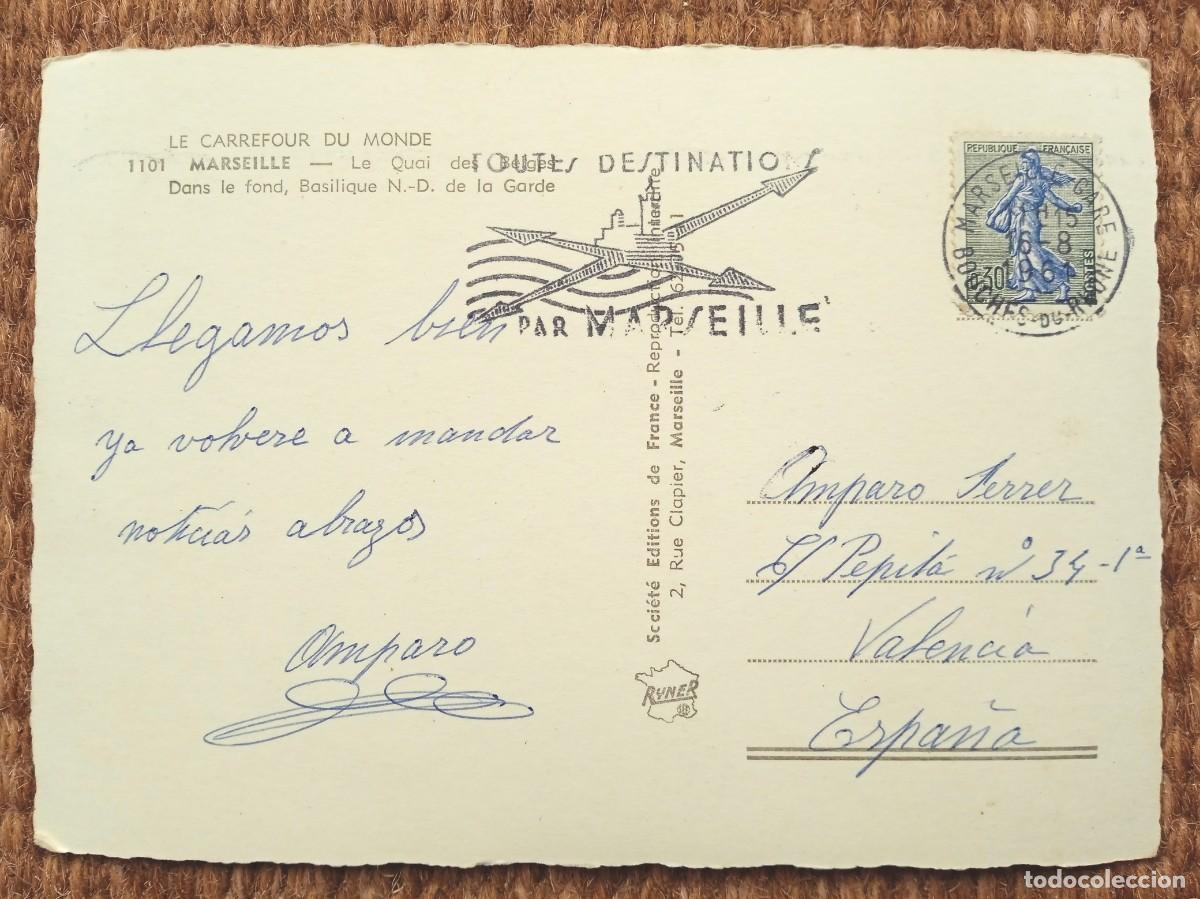 LE CARREFOUR DU MONDE
1101 MARSEILLE — Le Quai des Belges
Dans le fond, Basilique N.-D. de la Garde
TOUTES DESTINATIONS
PAR MARSEILLE
REPUBLIQUE FRANÇAISE
0,30
POSTES
MARSEILLE GARE
16-8
1961
BOUCHES-DU-RHONE
Llegamos bien
ya volvere a mandar
noticias abrazos
Amparo
Société Editions de France - Reproduction interdite
2, Rue Clapier, Marseille - Tél.
RYNER
Amparo Ferrer
C/ Pepita nº 34-1ª
Valencia
España
todocoleccion